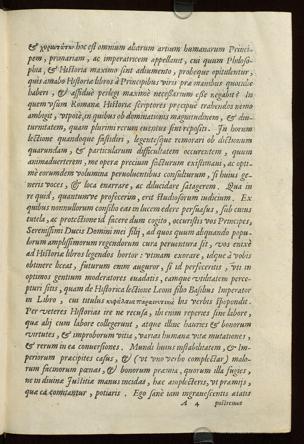 & χορηγὸν hoc est omnium aliarum artium humanarum Principem, promariam, ac imperatricem appellant, cui quum Philosophia, & Historia maximo sint adiumento, probeque opitulentur,
quis amabo Historiæ libros à Principibus viris præ manibus quotidie
haberi, & assidue perlegi maxime necessarium esse negabit? In
quem vsum Romanæ Historiæ scriptores præcipuè trahendos nemo
ambigit, vtpote, in quibus ob dominationis magnitudinem, & diuturnitatem, quam plurimi rerum euentus sint repositi. In horum
lectione quandoque fastidiri, legentesque remorari ob dictionum
quarundam, & particularum difficultatem occurrentem, quum
animaduerterem, me opera precium facturum existimaui, ac optime eorundem volumina peruoluentibus consulturum, si huius generis voces, & loca enarrare, ac dilucidare satagerem. Qua in
re quid, quantumve profecerim, erit studiosorum iudicium. Ex
quibus nonnullorum consilio eas in lucem edere persuasus, sub cuius
tutela, ac protectione id facere dum cogito, occuristis vos Principes,
Serenissimi Ducis Domini mei filij, ad quos quum aliquando populorum amplissimorum regendorum cura peruentura sit, vos enixè
ad Historiæ libros legendos hortor: vtinam exorare, idque à vobis
obtinere liceat, futurum enim auguror, si id perfeceritis, vt in
optimos gentium moderatores euadatis, eamque vtilitatem percepturi sitis, quam de Historica lectione Leoni filio Basilius Imperator
in Libro, cui titulus κεφάλαια παραινετικὰ his verbis spopondit.
Per veteres Historias ire ne recusa, ibi enim reperies sine labore,
quæ alij cum labore collegerunt, atque illinc hauries & bonorum
virtutes, & improborum vitia, varias humanæ vitæ mutationes,
& rerum in ea conuersiones. Mundi huius instabilitatem, & Imperiorum præcipites casus, & (vt vno verbo complectar) malorum facinorum pœnas, & bonorum præmia, quorum illa fugies,
ne in diuinæ Iustitiæ manus incidas, hæc amplecteris, vt præmijs,
quæ ea comitantur, potiaris. Ego sanè iam ingrauescentis ætatis
A 4